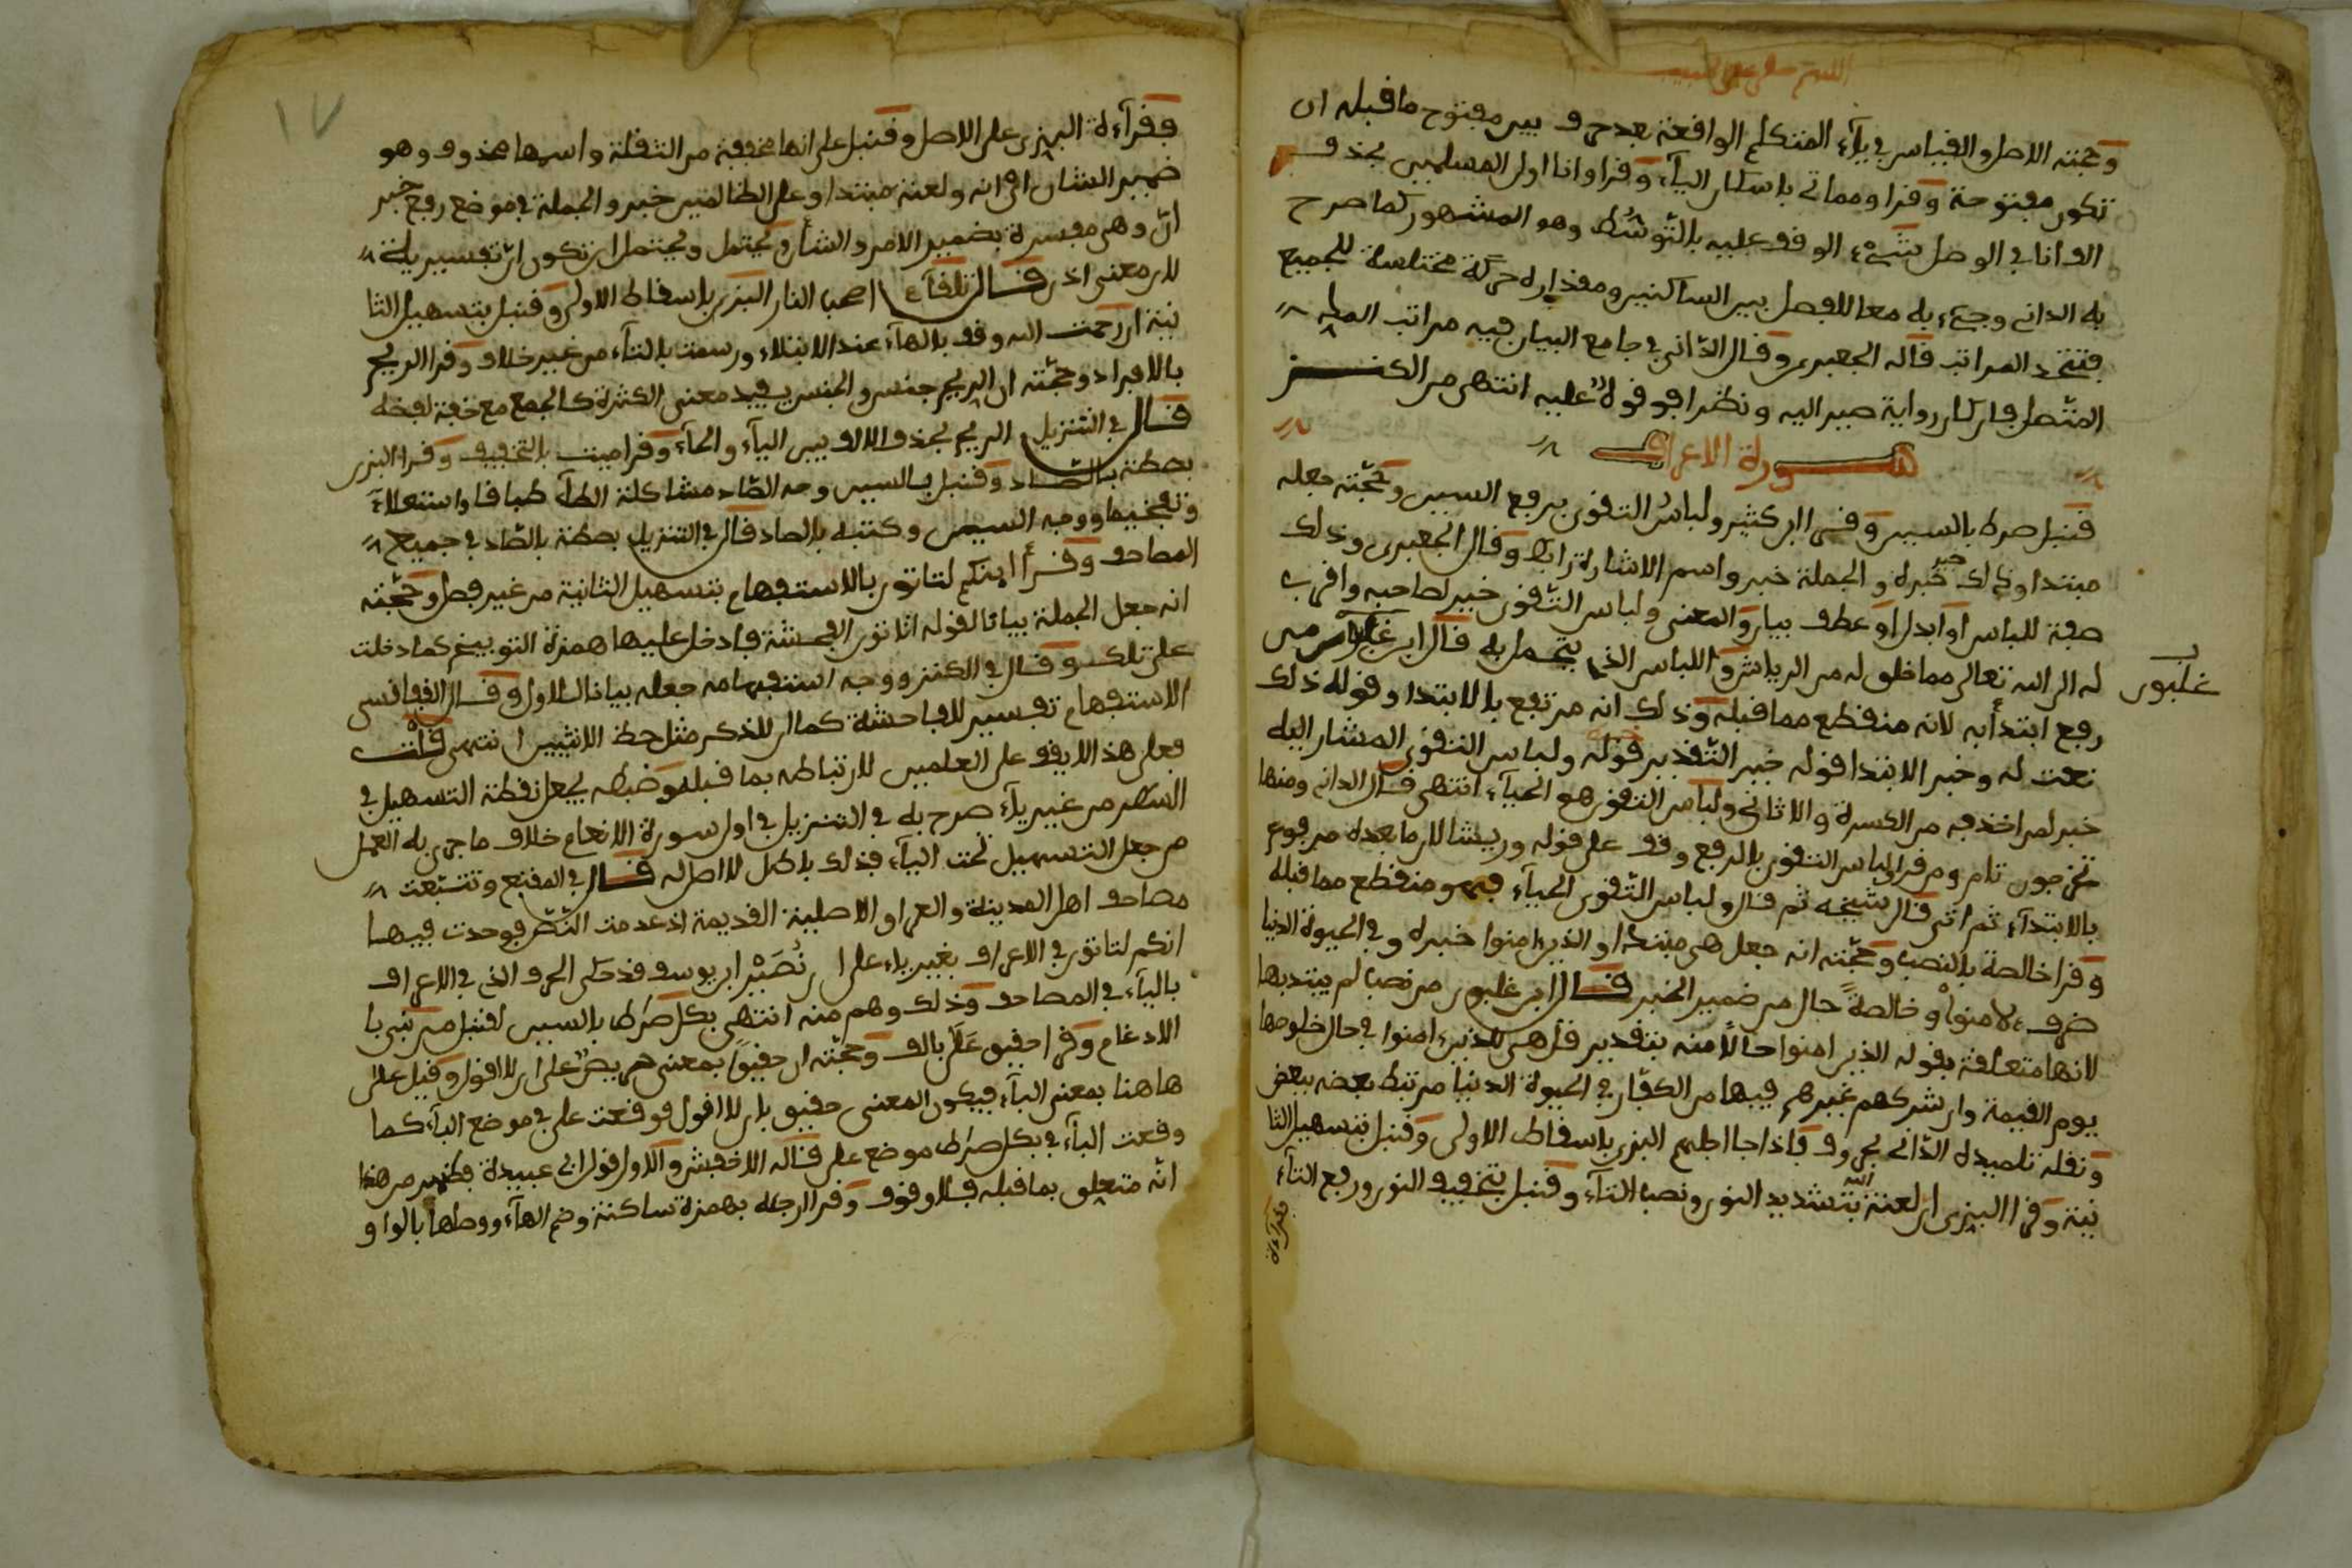 وحجته الاصل والقياس في ياء المتكلم الواقعة بعد حرف بين مفتوح ما قبله ان
تكون مفتوحة وقرا ومماتي باسكان الياء وقرا وانا اول المسلمين بحذف
الف انا في الوصل شيء الوقف عليه بالتوسط وهو المشهور كما صرح
به الداني وجيء به معا للفصل بين الساكنين ومقداره حركة مختلسة للجميع
فتتحد المراتب قاله الجعبري وقال الداني في جامع البيان فيه مراتب المد
المتصل فان كان رواية صير اليه ونظرا فوقوف عليه انتهى من الكنز
سورة الاعراف
قنبل صرط بالسين وقرى ابن كثير ولباس التقوى برفع السين وحجته جعله
مبتدا وذلك خبره والجملة خبر واسم الاشارة رابط وقال الجعبري وذلك
صفة للباس او ابدل او عطف بيان والمعنى ولباس التقوى خير لصاحبه واقرب
له الى الله تعالى مما خلق له من الرياش واللباس الذي يتجمل به قال ابن غلبون من
غلبون
رفع ابتدأ به لانه منقطع مما قبله وذلك انه مرتفع بالابتدا وقوله ذلك
نعت له وخبر الابتدا قوله خير التقدير قوله ولباس التقوى المشار اليه
خير لمن اخذ به من الكسوة والاثاث ولباس التقوى هو الحياء انتهى قال الداني ومنها
تخرجون تام ومن قرا ولباس التقوى بالرفع وقف على قوله وريشا لان ما بعده مرفوع
بالابتداء ثم اتى قال شيخه ثم قال ولباس التقوى الحياء فهو منقطع مما قبله
وقرا خالصة بالنصب وحجته انه جعل هي مبتدا والذين امنوا خبره وفي الحيوة الدنيا
ظرف لامنوا وخالصة حال من ضمير الخبر قال ابن غلبون من نصب لم يبتد بها
لانها متعلقة بقوله الذين امنوا حالا منه بتقدير قل هي للذين امنوا في حال خلوصها
يوم القيمة وان شركهم غيرهم فيها من الكفار في الحيوة الدنيا مرتبط بعضه ببعض
ونقله تلميذه الداني بحروف فاذا جا اجلهم البزي باسقاط الاولى وقنبل بتسهيل الثا
نية وقرا البزي ان لعنة الله بتشديد النون ونصب التاء وقنبل بتخفيف النون ورفع التاء
فقراءة
١٧
فقراءة البزي على الاصل وقنبل على انها مخففة من الثقلة واسمها محذوف وهو
ضمير الشان اي انه ولعنة مبتدا وعلى الظالمين خبر والجملة في موضع رفع خبر
ان وهي مفسرة بضمير الامر والشأن ويحتمل ويحتمل ان تكون ان تفسيرية
لان معنى اذن قال تلقاء اصحب النار البزي باسقاط الاولى وقنبل بتسهيل الثا
نية ان رحمت الله وقف بالهاء عند الابتلاء ورسمت بالتاء من غير خلاف وقرا الريح
بالافراد وحجته ان الريح جنس والجنس يفيد معنى الكثرة كالجمع مع خفة لفظه
قال في التنزيل الريح بحذف الالف بين الياء والحاء وقرا ميت بالتخفيف وقرا البزي
بصطة بالصاد وقنبل بالسين وجه الصاد مشاكلة الطاء طباقا واستعلاء
وتفخيما ووجه السين وكتبه بالصاد قال في التنزيل بصطة بالصاد في جميع
المصاحف وقرأ اينكم لتاتون بالاستفهام بتسهيل الثانية من غير فصل وحجته
انه جعل الجملة بيانا لقوله اتاتون الفحشة فادخل عليها همزة التوبيخ كما دخلت
على تلك وقال في الكنز ووجه استفهامه جعله بيانا للاول وقال الفاسي
الاستفهام تفسير للفاحشة كما ان للذكر مثل حظ الانثيين انتهى قلت
فعلى هذا لا يوقف على العلمين لارتباطه بما قبله وضبطه بجعل نقطة التسهيل في
السطر من غير ياء صرح به في التنزيل في اول سورة الانعام خلاف ما جرى به العمل
من جعل التسهيل تحت الياء فذلك باطل لا اصل له قال في المقنع وتتبعت
مصاحف اهل المدينة والعراق الاصلية القديمة اذ عدمت النص فوجدت فيها
انكم لتاتون في الاعراف بغير ياء على ان نصير ابن يوسف قد حكى الحرف الذي في الاعراف
بالياء في المصاحف وذلك وهم منه انتهى بكل صرط بالسين لقنبل من نبي با
الادغام وقرا حقيق على بالف وحجته ان حقيق بمعنى حريص على ان لا اقول وقيل على
هاهنا بمعنى الباء فيكون المعنى حقيق بان لا اقول فوقعت على في موضع الباء كما
وقعت الباء في بكل صرط موضع على قاله الاخفش والاول قول ابي عبيدة فظهر من هذا
انه متعلق بما قبله فلا وقف وقرا ارجئه بهمزة ساكنة وضم الهاء ووصلها بالواو